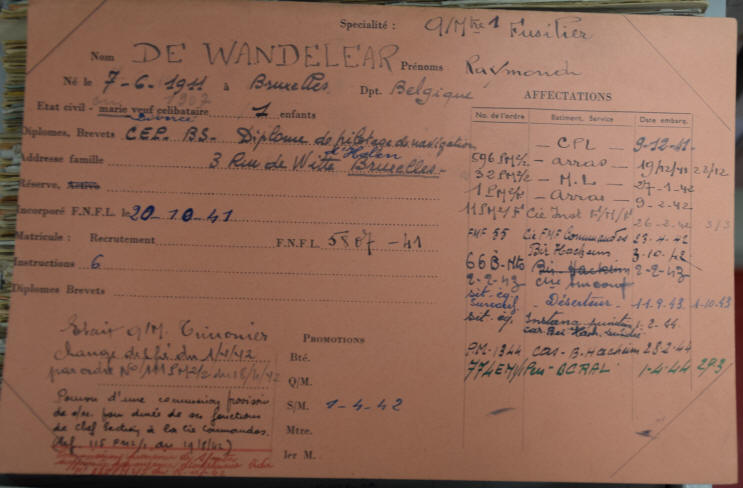 Specialité : Q/Mtre 1 Fusilier
Nom DE WANDELEAR Prénoms Raymond
Né le 7-6-1911 à Bruxelles. Dpt. Belgique
1907
Etat civil - marie veuf celibataire 1 enfants
Divorcé
Diplomes, Brevets CEP. BS- Diplome de pilotage de navigation
Adresse famille 3 Rue de Witte d'Halen Bruxelles-
Réserve, Active
Incorporé F.N.F.L. le 20-10-41
Matricule : Recrutement F.N.F.L. 5807-41
Instructions 6
Diplomes Brevets
AFFECTATIONS
No. de l'ordre Batiment, Service Date embarq.
- CPL - 9-12-41-
596 SM2/2 - Arras - 19/12/41 22/12
32 SM2/2 - M.L - 27-1-42
1 SM2/2 - Arras - 9-2-42
Cie Inst 26-2-42 3/3
FMF 55 Cie FMF Commandos 23-4-42
Bir Hacheim 3-10-42
668-Mto Bir Hacheim 2-2-43
2-2-43
sit. eq. - Déserteur - 11-9-43 1-10-43
sit. eq. 1-2-44
PM-1344 Cas- B. Hacheim 28-2-44
774EM/1 BCRAL 1-4-44 293
Etait Q/M. Timonier
Change de spé du 1/4/42
par ordre No/111 SM2/2 du 18/4/42
Pourvu d'une commission provisoire
de s/m. pour durée de ses fonctions
de chef Section à la cie Commandos.
(Ref. 115 FM2/1 du 19/8/42)
PROMOTIONS
Bté.
Q/M.
S/M. 1-4-42
Mtre.
1er M.